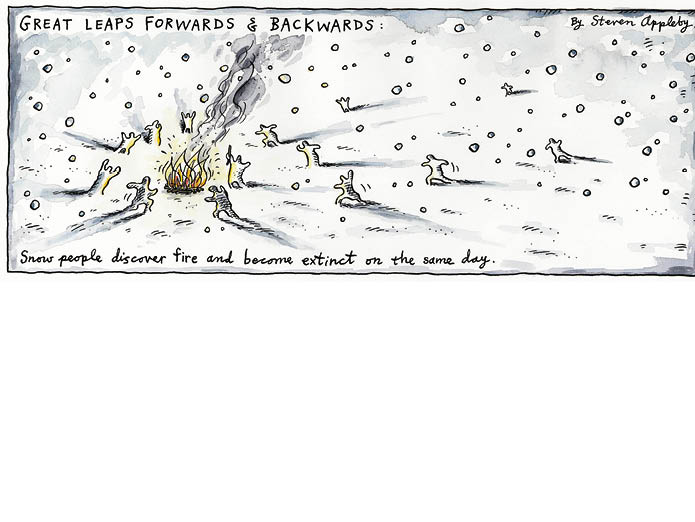 GREAT LEAPS FORWARDS & BACKWARDS:
By Steven Appleby
Snow people discover fire and become extinct on the same day.